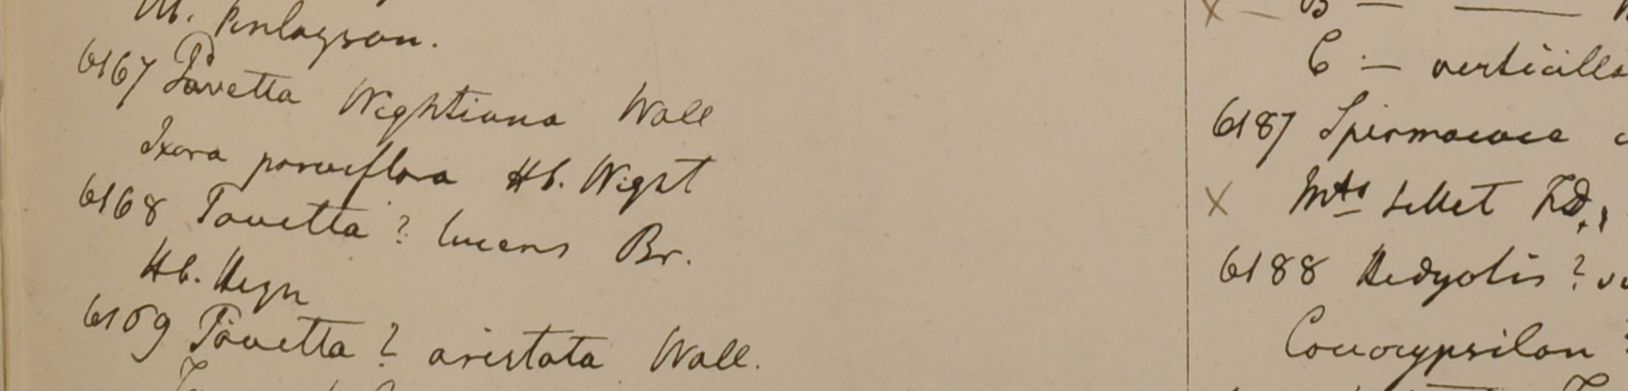 Finlayson.
6167 Pavetta Wightiana Wall
Ixora parviflora Hb. Wight
6168 Pavetta? lucens Br.
Hb. Heyn
6169 Pavetta? aristata Wall.
X — B —
C — verticilla
6187 Spermacoce
X Mts Sillet F.D.
6188 Hedyotis?
Coccocypsilon